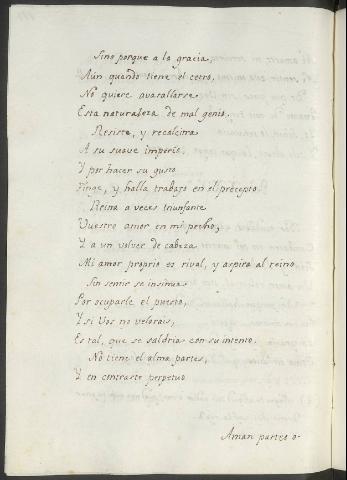 Sino porque a la gracia,
Aún quando tiene el cetro,
No quiere avasallarse
Esta naturaleza de mal genio.
Resiste, y recalcitra
A su suave imperio,
Y por hacer su gusto
Finge, y halla trabajo en el precepto.
Reina a veces triunfante
Vuestro amor en mi pecho,
Y a un volver de cabeza
Mi amor proprio es rival, y aspira al reino.
Sin sentir se insinua
Por ocuparle el puesto,
Y si Vos no velarais,
Es tal, que se saldria con su intento.
No tiene el alma partes,
Y en contraste perpetuo
Aman partes o-